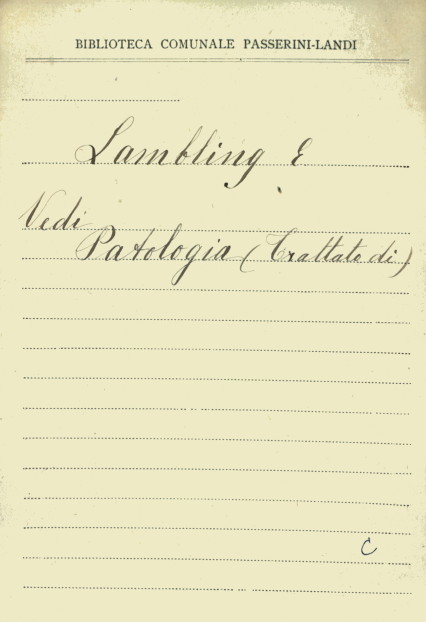 BIBLIOTECA COMUNALE PASSERINI-LANDI
Lambling E
Vedi
Patologia (Trattato di)
C